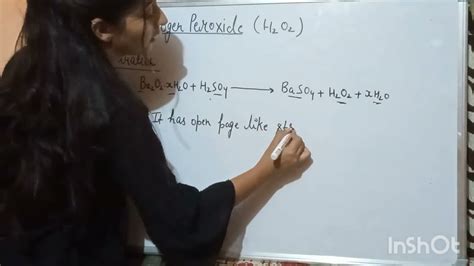 ogen Peroxide (H2O2)
aration
Ba2O2·xH2O + H2SO4 ⟶ BaSO4 + H2O2 + xH2O
It has open page like st
InShOt